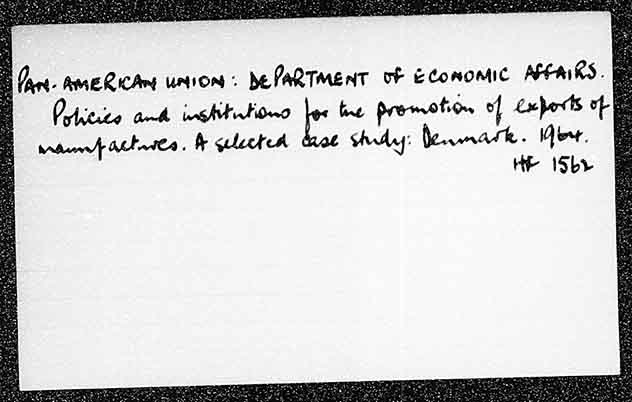 PAN-AMERICAN UNION: DEPARTMENT OF ECONOMIC AFFAIRS.
Policies and institutions for the promotion of exports of
manufactures. A selected case study: Denmark. 1964.
HF 1562